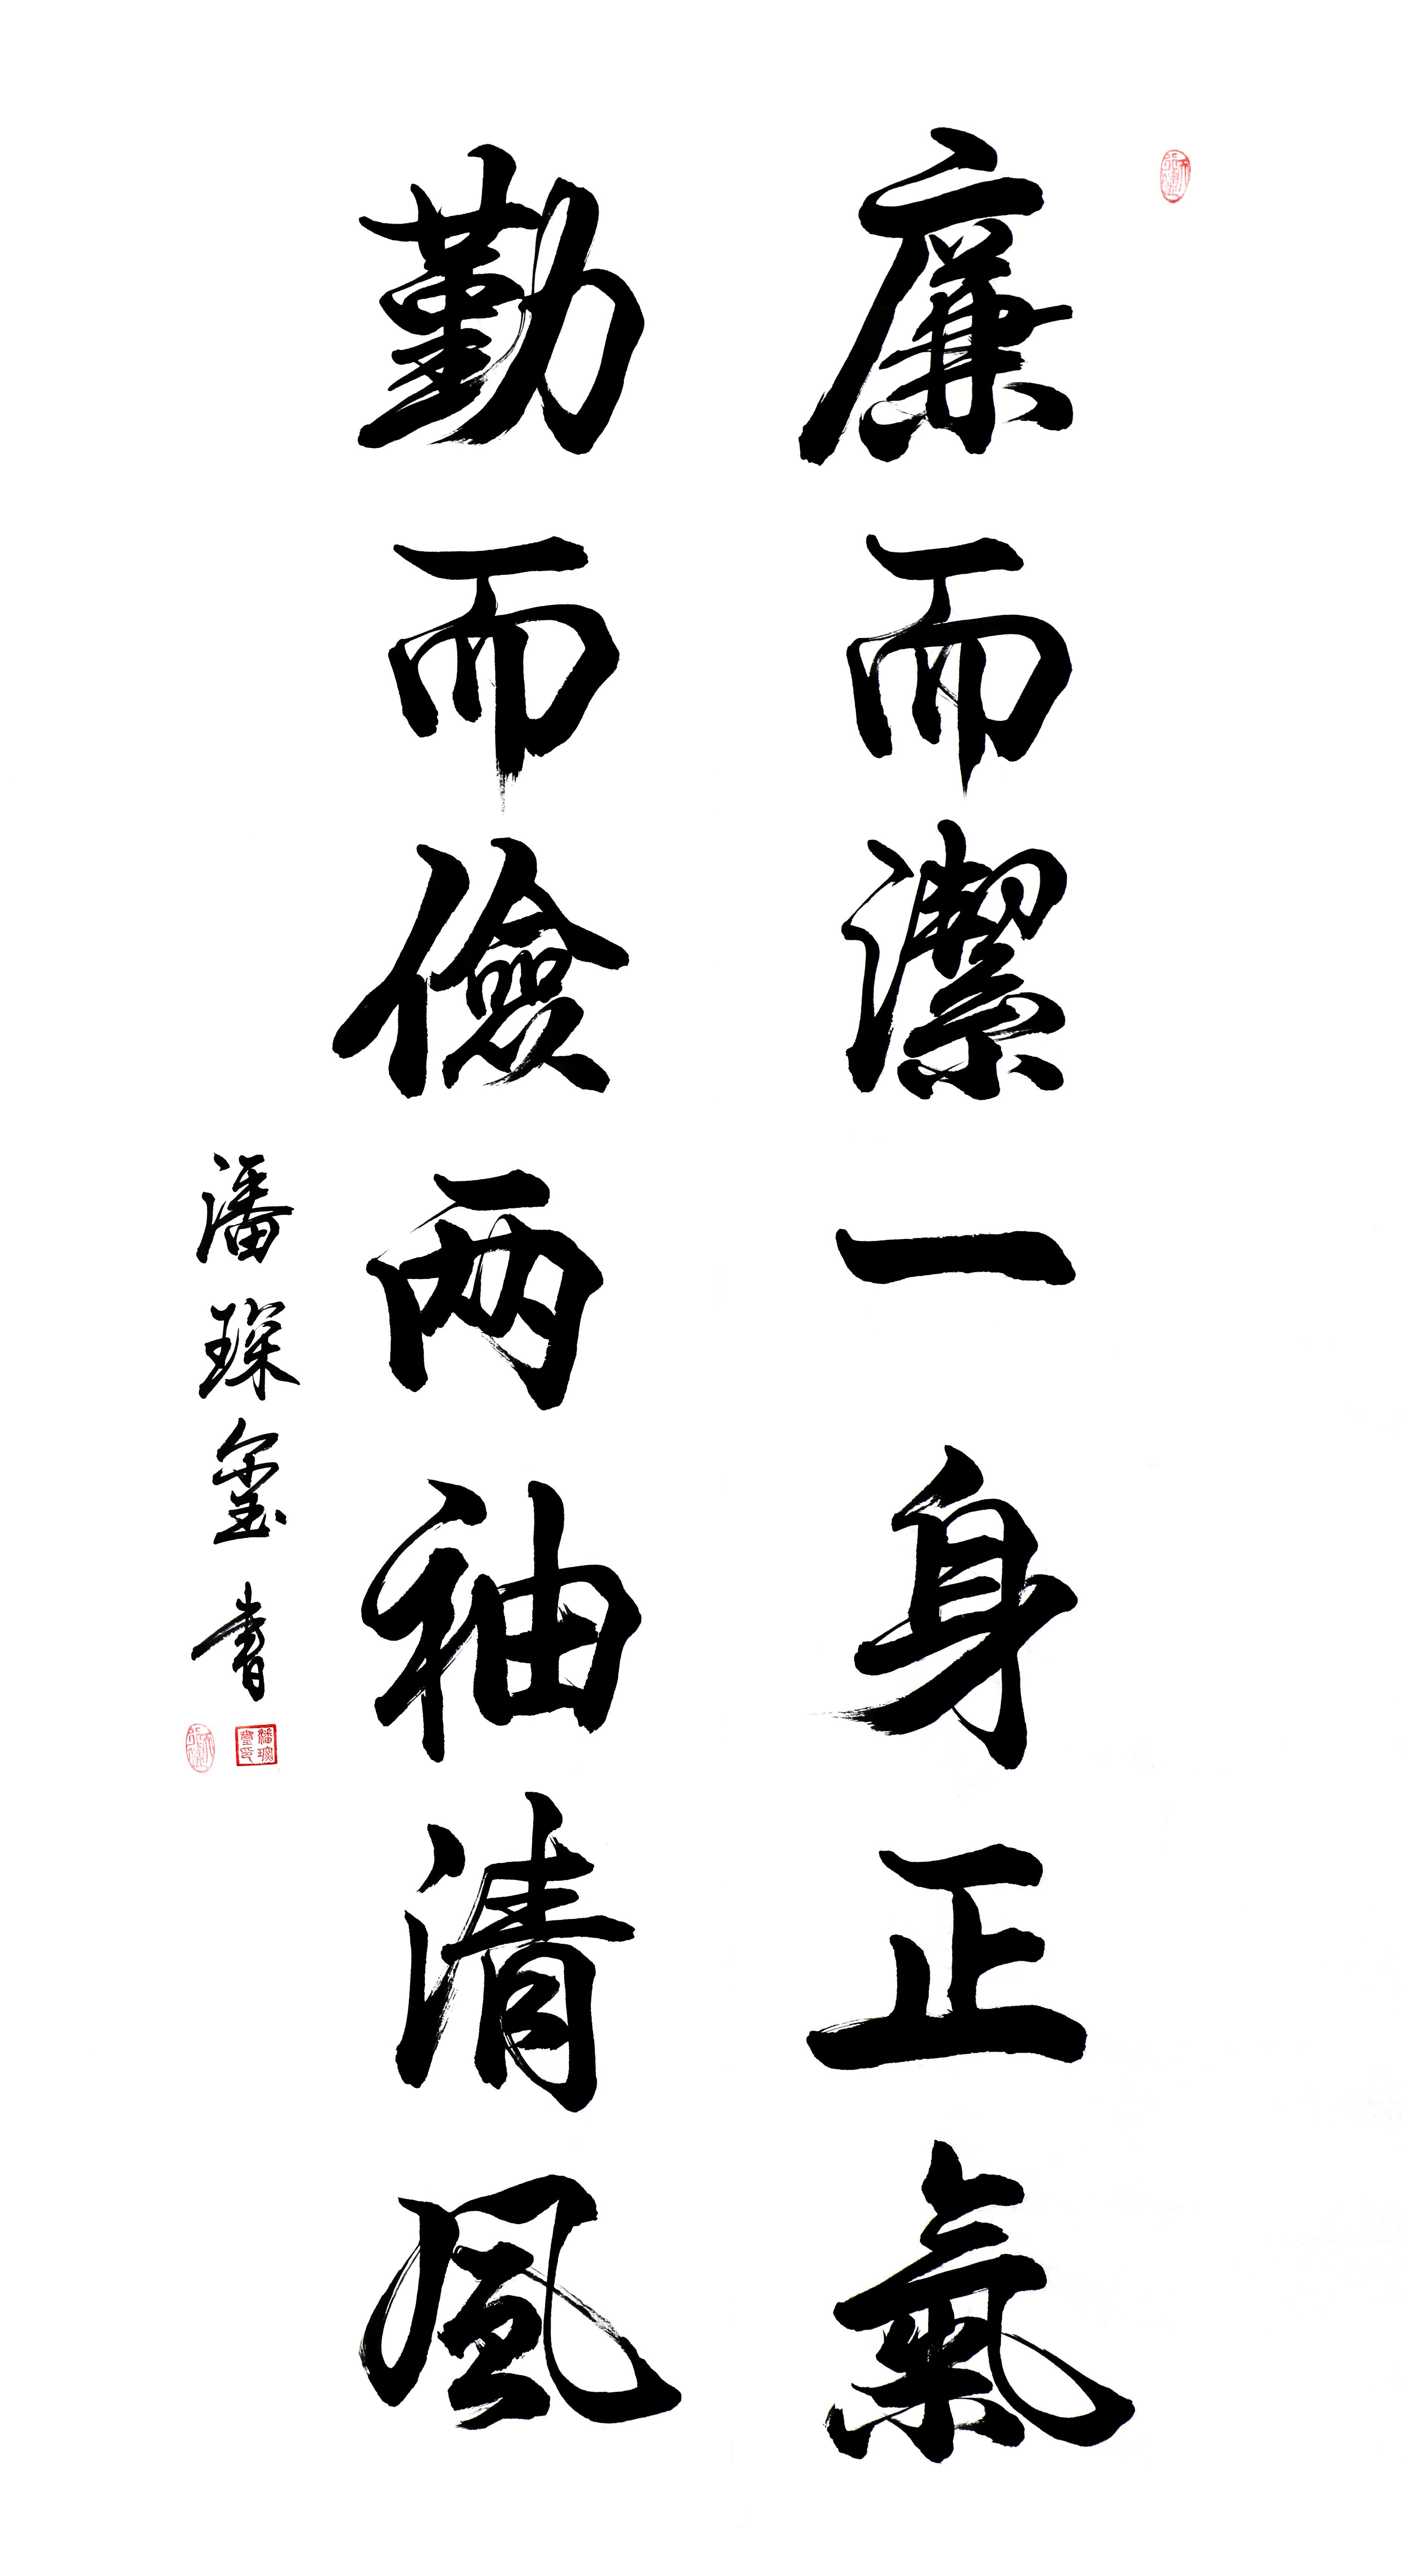 廉而潔一身正氣
勤而儉两袖清風
潘琛璽 書